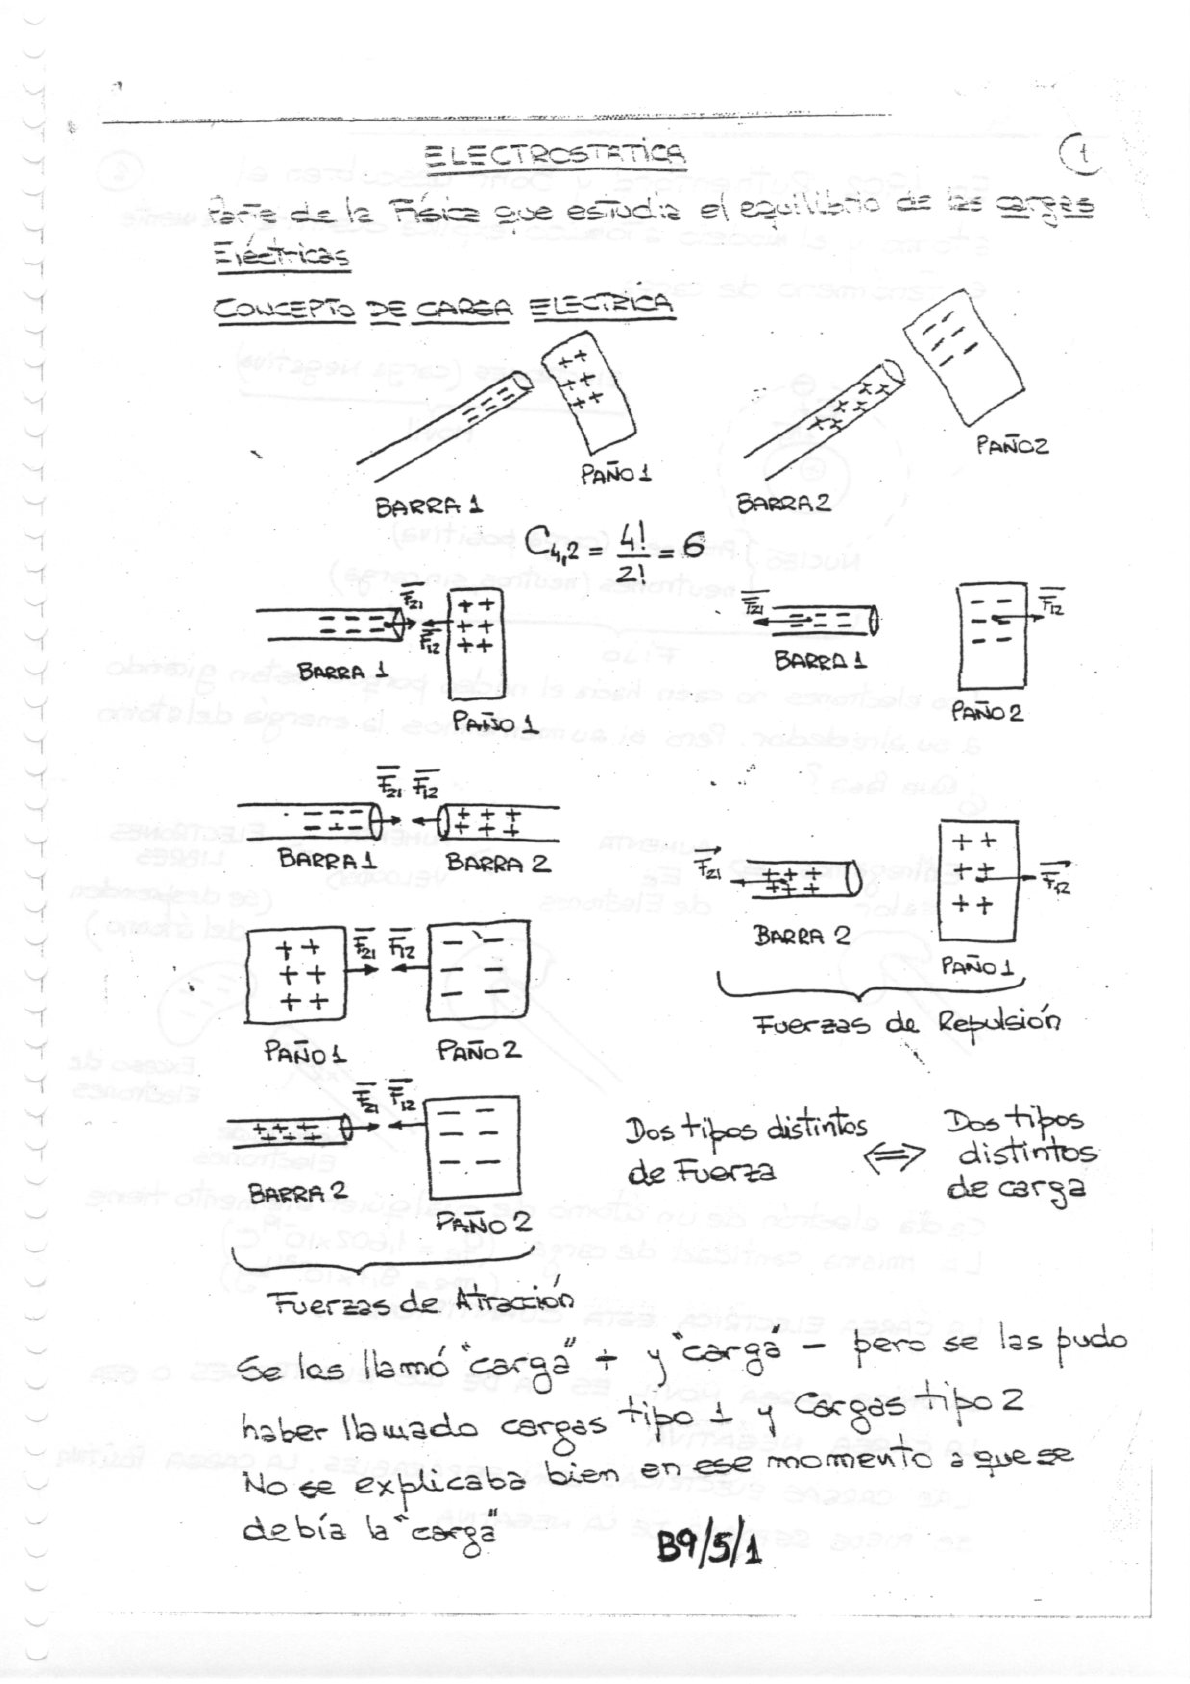 ELECTROSTATICA
1
Parte de la Física que estudia el equilibrio de las cargas
Eléctricas
CONCEPTO DE CARGA ELECTRICA
PAÑO 1
PAÑO 2
BARRA 1
BARRA 2
C4,2 = 4!/2! = 6
F21
F12
BARRA 1
PAÑO 1
F21
F12
BARRA 1
PAÑO 2
F21 F12
BARRA 1
BARRA 2
F21
F12
BARRA 2
PAÑO 1
Fuerzas de Repulsión
F21 F12
PAÑO 1
PAÑO 2
F21 F12
BARRA 2
PAÑO 2
Fuerzas de Atracción
Dos tipos distintos
de Fuerza
⇔
Dos tipos
distintos
de carga
Se las llamó "carga" + y "carga" - pero se las pudo
haber llamado cargas tipo 1 y cargas tipo 2
No se explicaba bien en ese momento a que se
debía la "carga"
B9/5/1